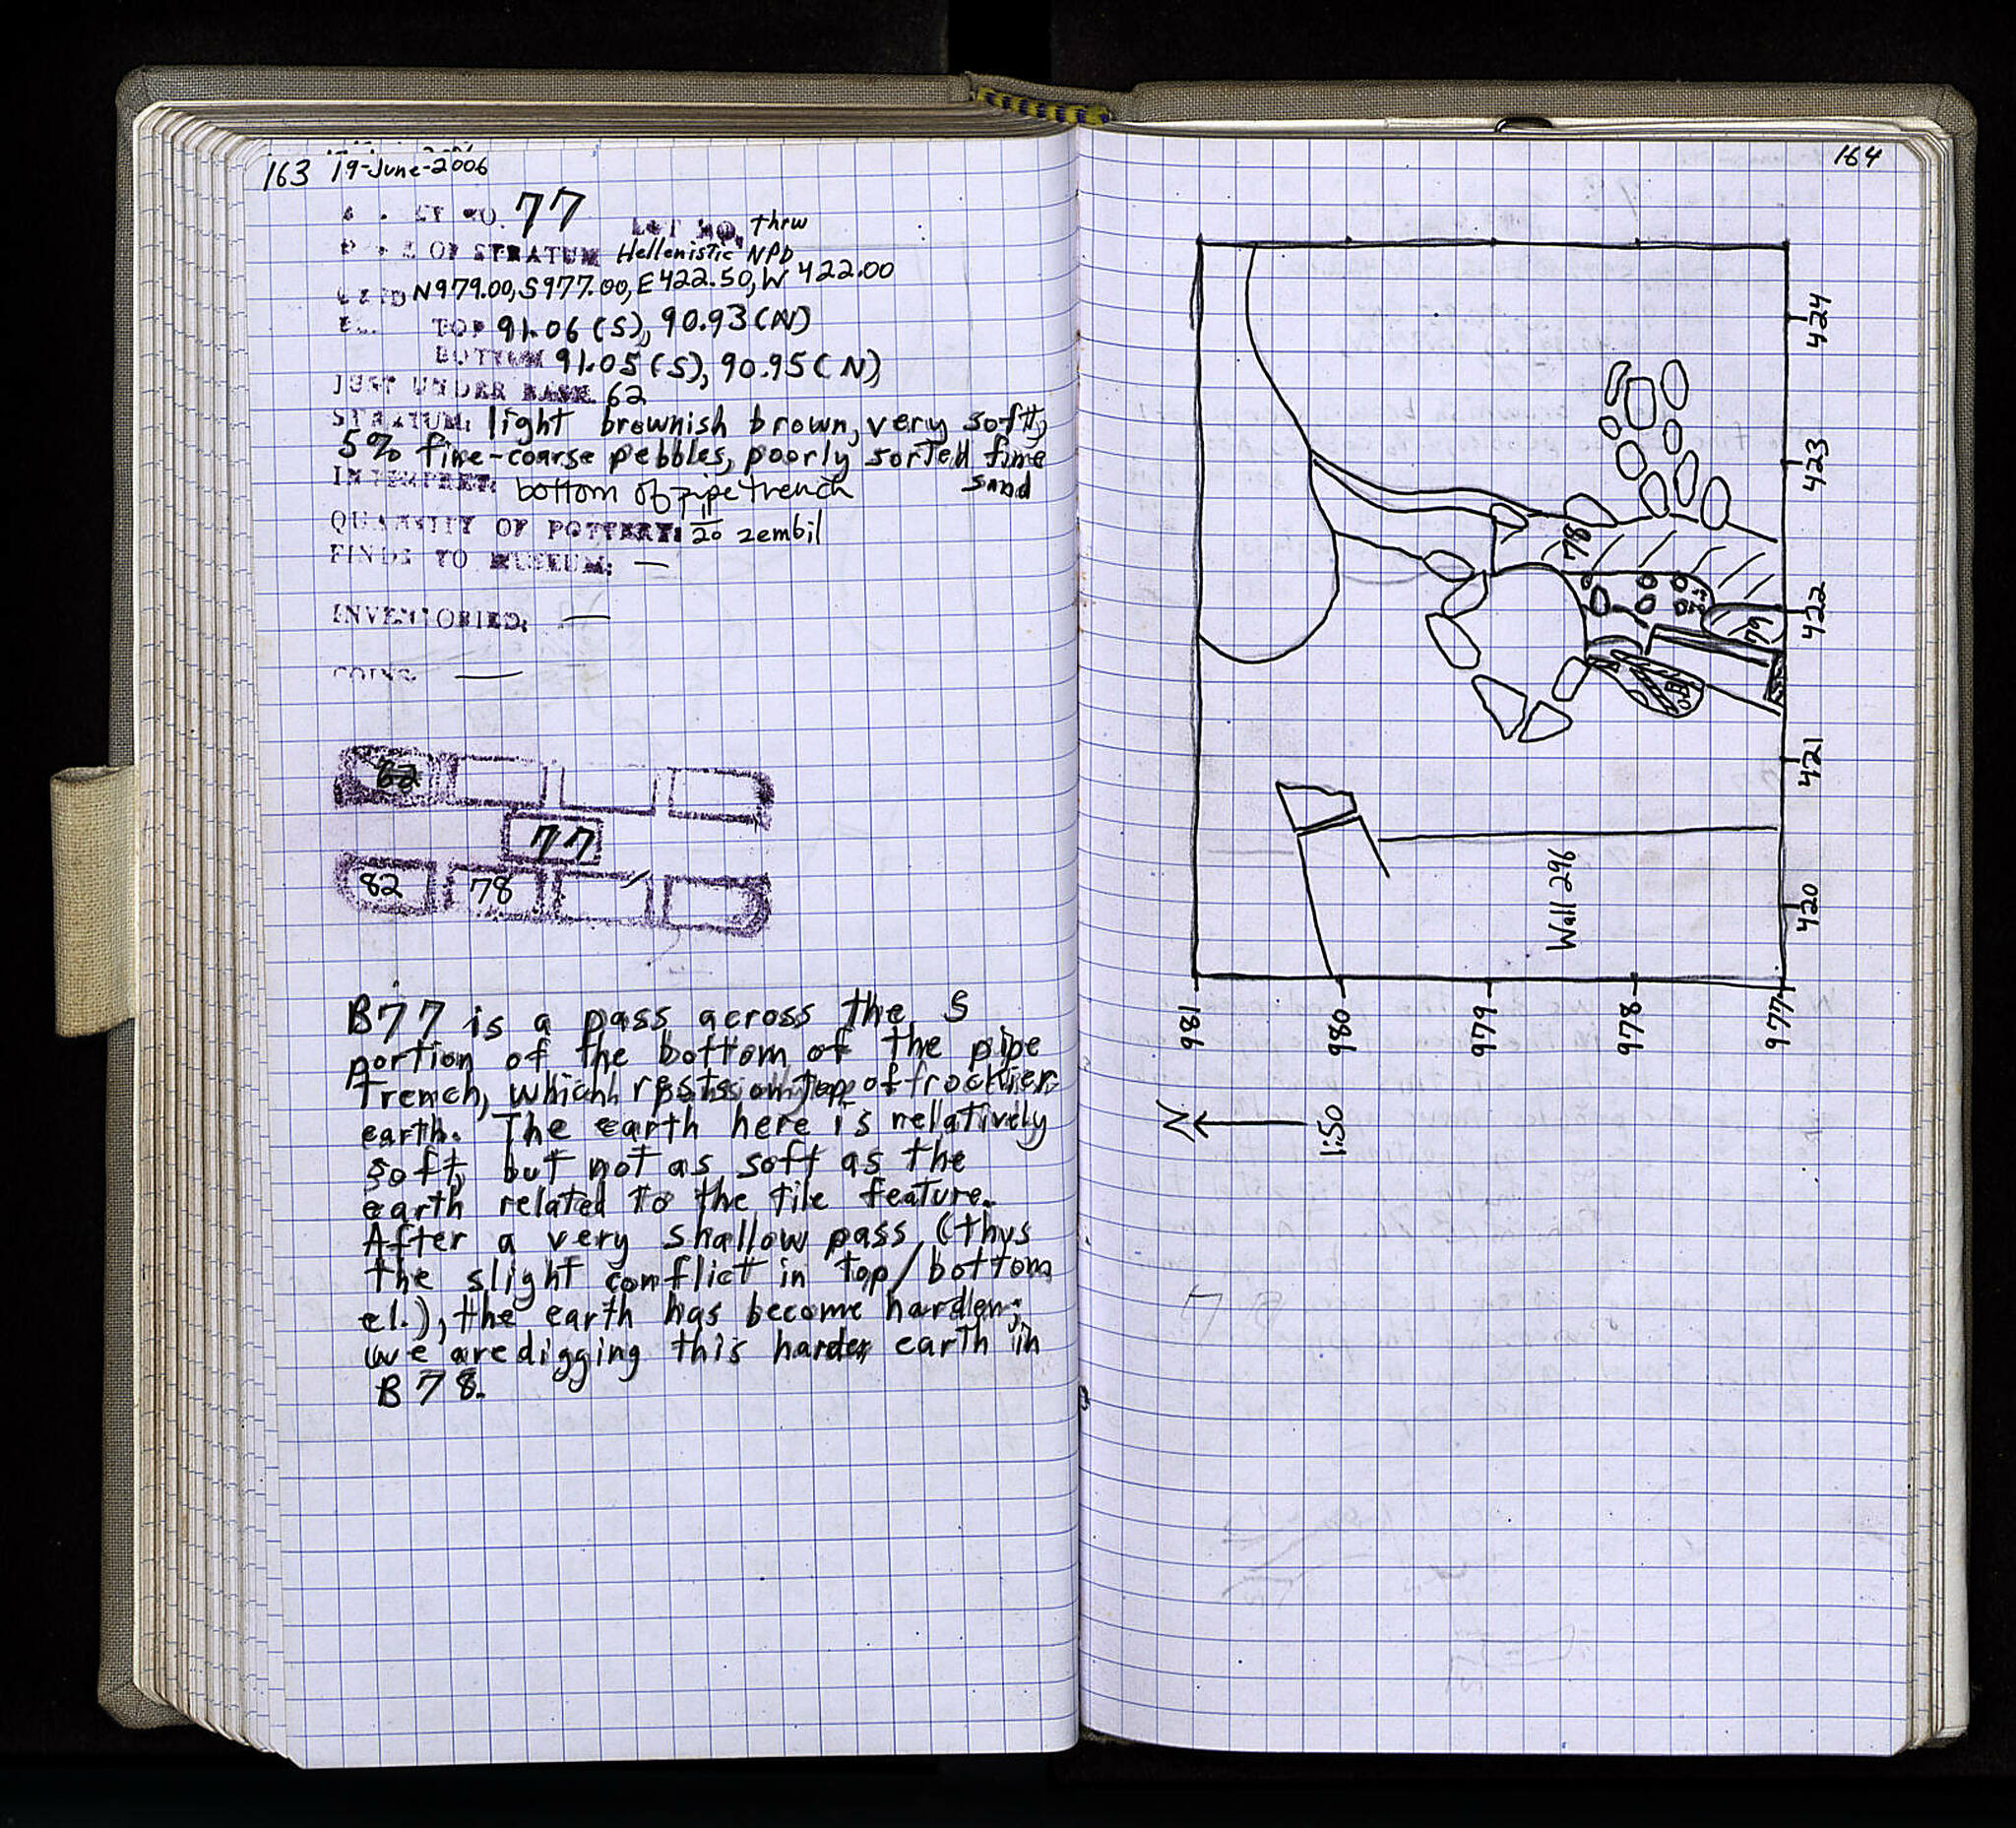 163 19-June-2006
77 LOT NO. thrw
OF STRATUM Hellenistic NPD
GRID N979.00, S977.00, E422.50, W 422.00
TOP 91.06 (S), 90.93 (N)
BOTTOM 91.05 (S), 90.95 (N)
JUST UNDER BASK. 62
STRATUM: light brownish brown, very soft,
5% fine-coarse pebbles, poorly sorted fine
sand
INTERPRET: bottom of pipe trench
QUANTITY OF POTTERY: 1/20 zembil
FINDS TO MUSEUM: —
INVENTORIED: —
COINS —
62
77
82 78
B77 is a pass across the S
portion of the bottom of the pipe
trench, which rests on top of rockier
earth. The earth here is relatively
soft, but not as soft as the
earth related to the tile feature.
After a very shallow pass (thus
the slight conflict in top/bottom
el.), the earth has become harder;
we are digging this harder earth in
B 78.
164
424
423
422
421
420
78
79
Wall 296
981
980
979
978
977
N
1:50